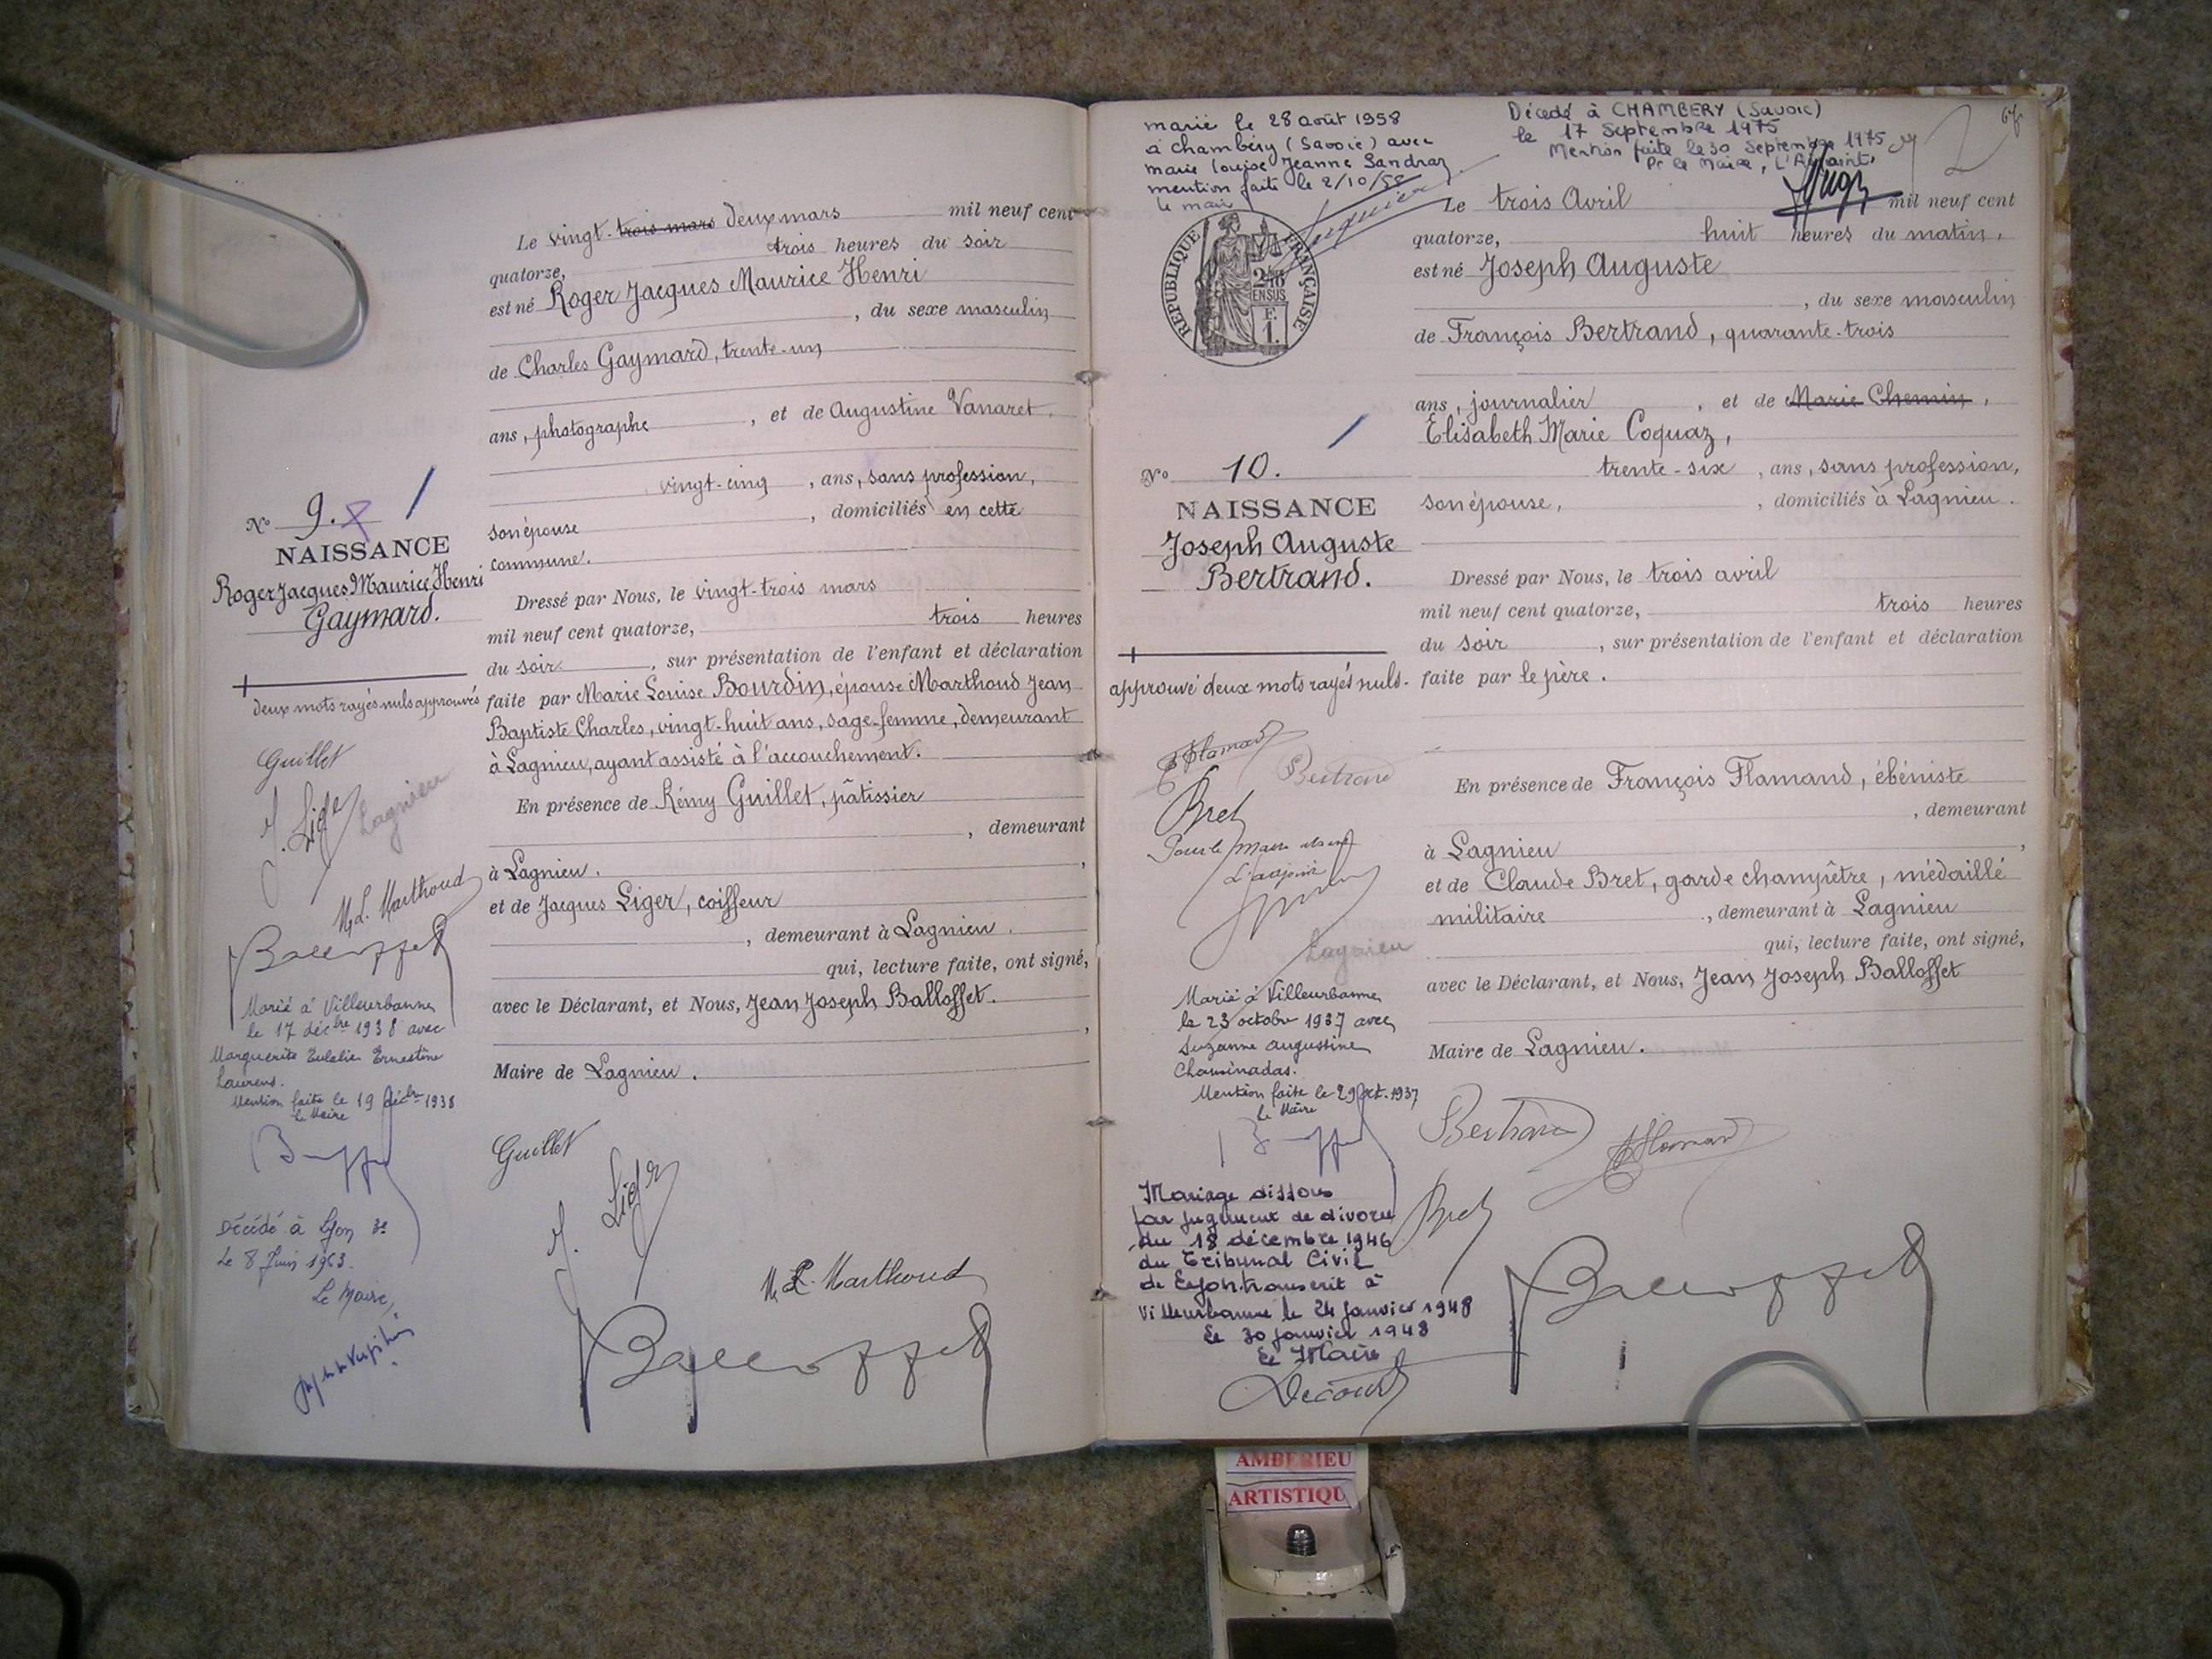 Le vingt-trois mars deux mars mil neuf cent
quatorze, trois heures du soir
est né Roger Jacques Maurice Henri
, du sexe masculin
de Charles Gaymard, trente-un
ans, photographe , et de Augustine Vanaret,
vingt-cinq , ans, sans profession,
son épouse , domiciliés en cette
commune.
Dressé par Nous, le vingt-trois mars
mil neuf cent quatorze, trois heures
du soir , sur présentation de l'enfant et déclaration
faite par Marie Louise Bourdin, épouse Marthoud Jean
Baptiste Charles, vingt-huit ans, sage-femme, demeurant
à Lagnieu, ayant assisté à l'accouchement.
En présence de Rémy Guillet, pâtissier
, demeurant
à Lagnieu. ,
et de Jacques Liger, coiffeur
, demeurant à Lagnieu.
qui, lecture faite, ont signé,
avec le Déclarant, et Nous, Jean Joseph Balloffet.
,
Maire de Lagnieu.
Guillet
J. Liger
M. L. Marthoud
Balloffet
No 9.
NAISSANCE
Roger Jacques Maurice Henri
Gaymard.
deux mots rayés nuls approuvés
Guillet
J. Liger
Lagnieu
M. L. Marthoud
Balloffet
Marié à Villeurbanne
le 17 décbre 1938 avec
Marguerite Eulalie Ernestine
Laurens.
Mention faite le 19 décbre 1938
le Maire
Décédé à Lyon 3e
Le 8 Juin 1963.
Le Maire,
marié le 28 août 1958
à Chambéry (Savoie) avec
marie louise Jeanne Sandraz
mention faite le 2/10/58
le maire
Décédé à CHAMBERY (Savoie)
le 17 Septembre 1975
Mention faite le 30 Septembre 1975
Pr le Maire, L'Adjoint,
REPUBLIQUE FRANÇAISE
2/10
EN SUS
F.
1.
Le trois Avril mil neuf cent
quatorze, huit heures du matin,
est né Joseph Auguste
, du sexe masculin
de François Bertrand, quarante-trois
ans, journalier , et de Marie Chemin,
Elisabeth Marie Coquaz,
trente-six , ans, sans profession,
son épouse, , domiciliés à Lagnieu.
Dressé par Nous, le trois avril
mil neuf cent quatorze, trois heures
du soir , sur présentation de l'enfant et déclaration
faite par le père.
En présence de François Flamand, ébéniste
, demeurant
à Lagnieu ,
et de Claude Bret, garde champêtre, médaillé
militaire , demeurant à Lagnieu
qui, lecture faite, ont signé,
avec le Déclarant, et Nous, Jean Joseph Balloffet
Maire de Lagnieu.
Bertrand
Flamand
Bret
Balloffet
No 10.
NAISSANCE
Joseph Auguste
Bertrand.
approuvé deux mots rayés nuls.
Flamand
Bertrand
Bret
Pour le maire
L'adjoint
Lagnieu
Marié à Villeurbanne
le 23 octobre 1937 avec
Suzanne Augustine
Chaminadas.
Mention faite le 29 Oct. 1937
le Maire
Mariage dissous
par jugement de divorce
du 18 décembre 1946
du Tribunal Civil
de Lyon transcrit à
Villeurbanne le 24 janvier 1948
Le 30 janvier 1948
Le Maire
Decourt
AMBERIEU
ARTISTIQU